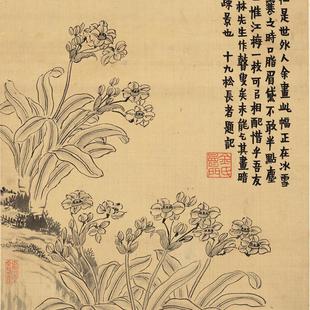 是世外人余畫此幅正在冰雪
寒之時口脂眉黛不敢半點塵
惟江梅一枝可弓相配惜乎吾友
林先生作瞽叟矣未能乞其畫暗
疎景也 十九松長者題記
金氏壽門